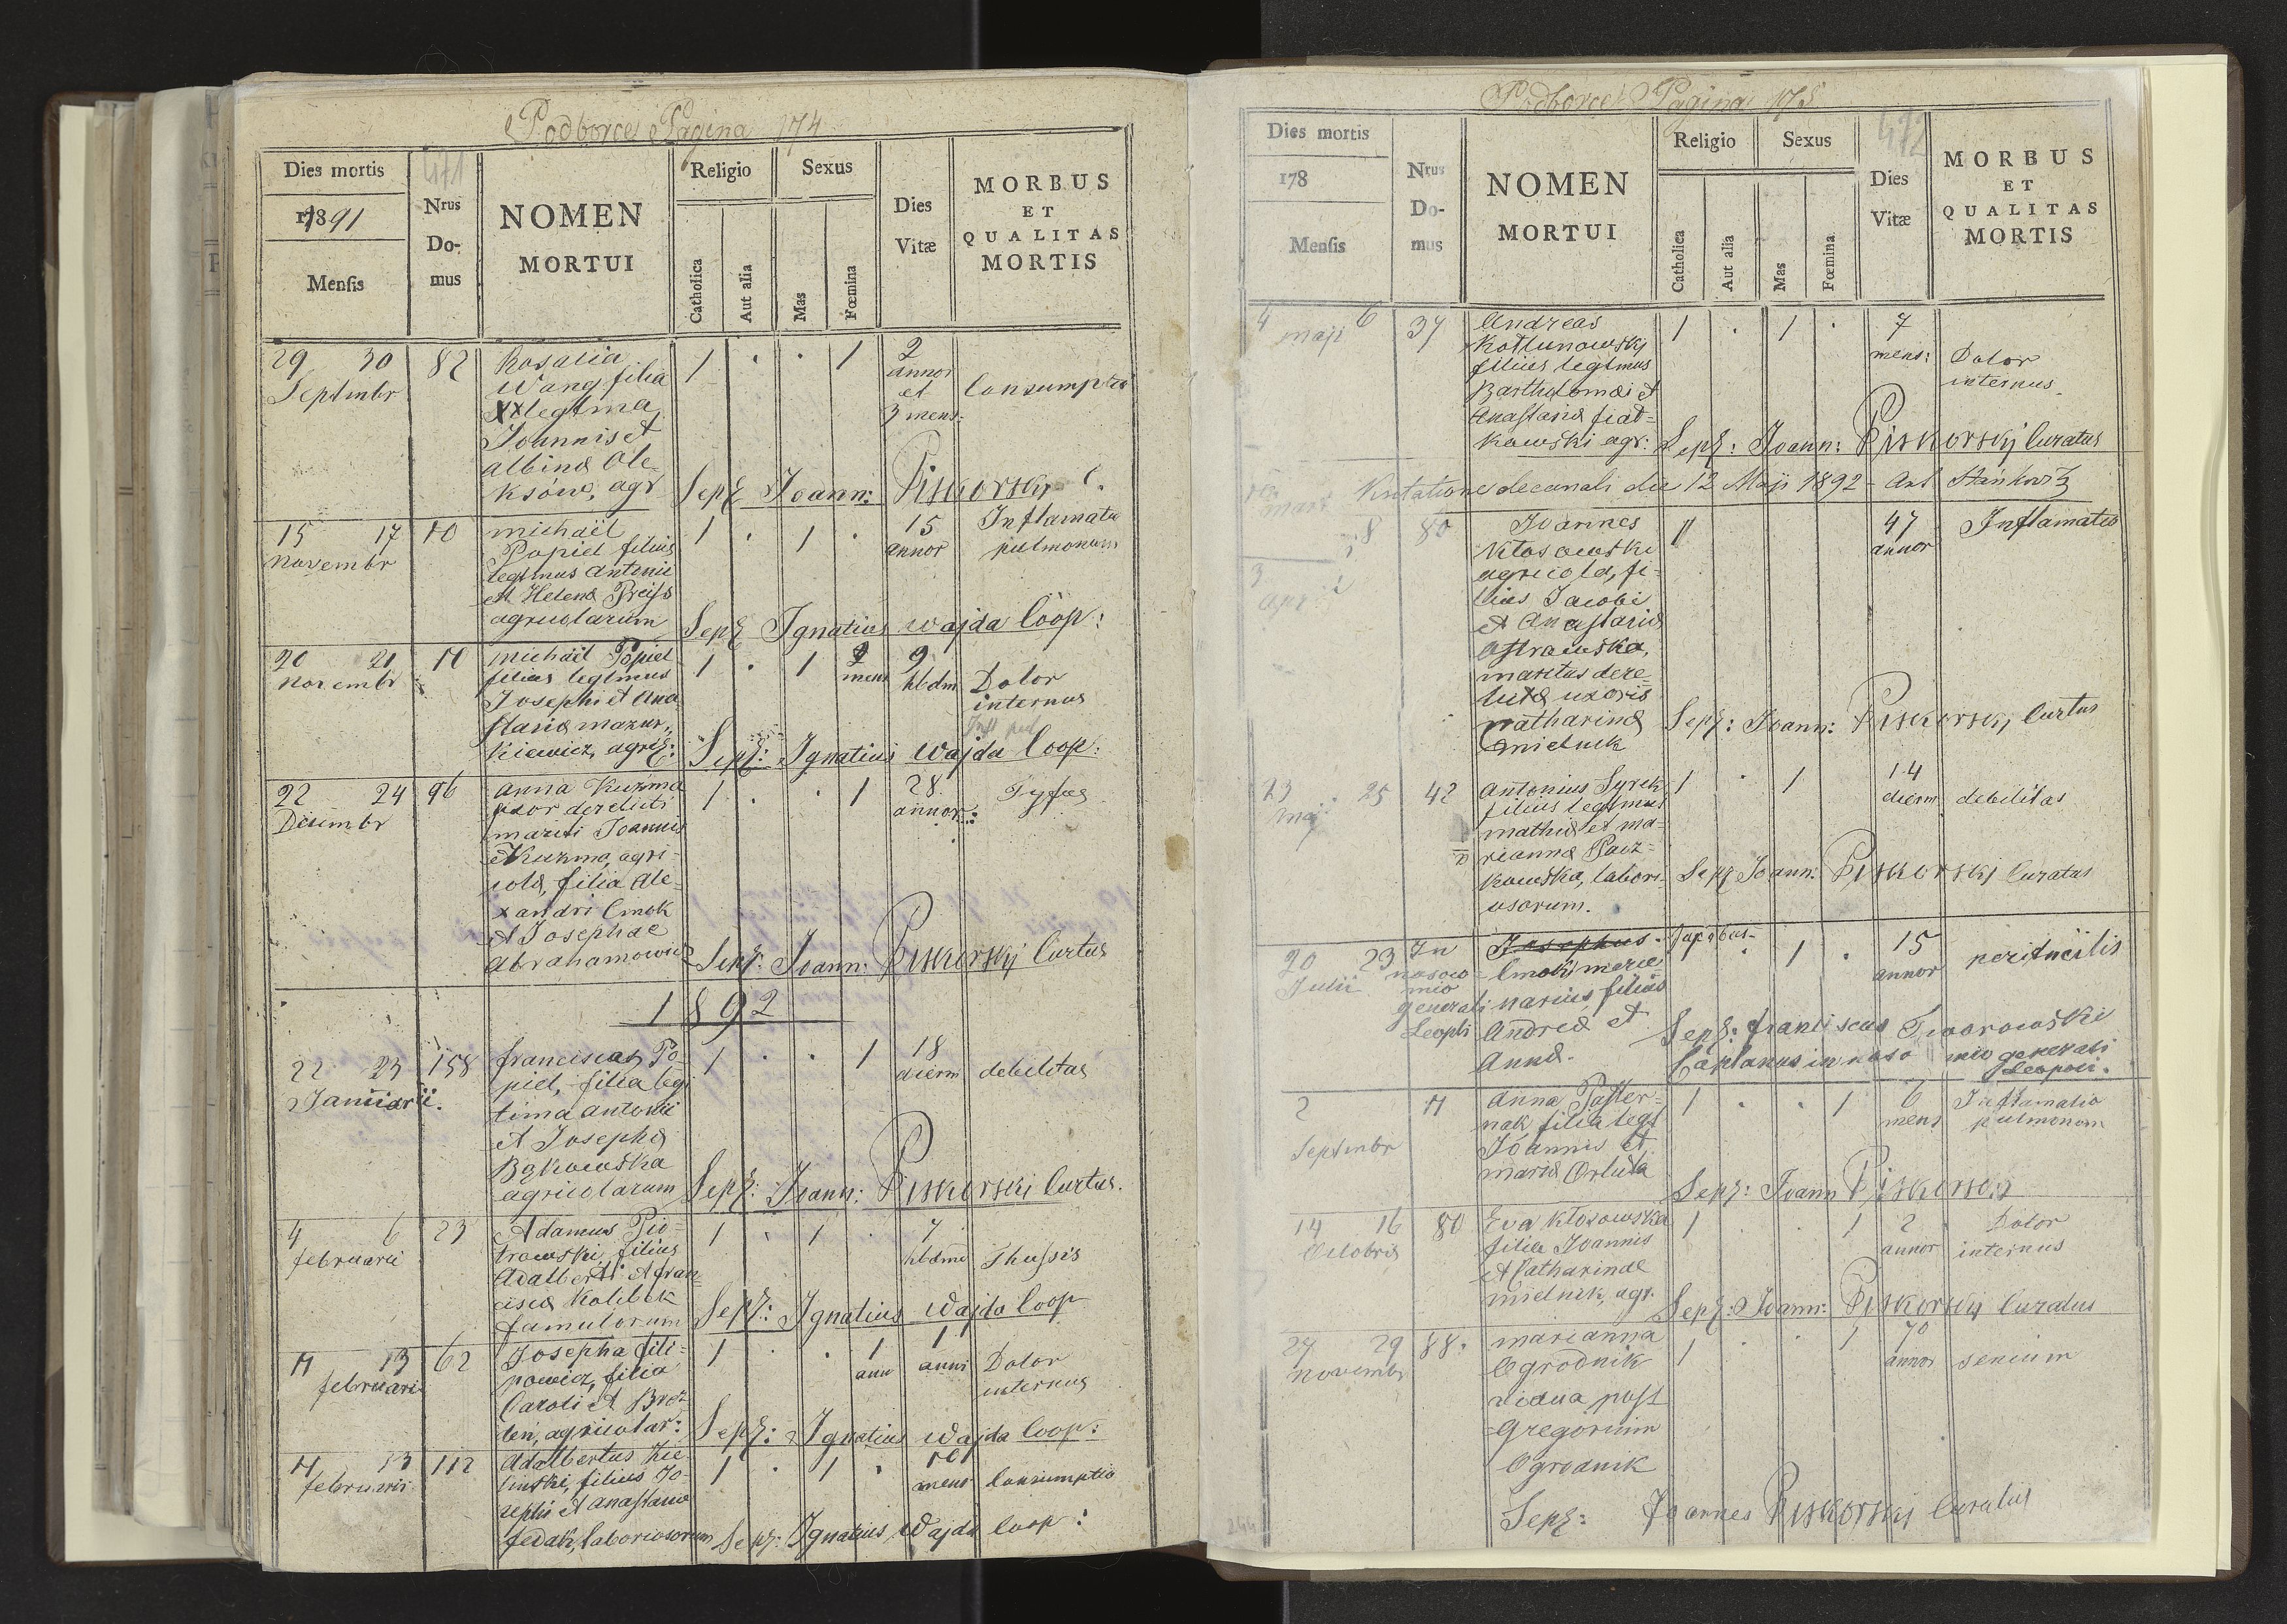 Podborce Pagina 174
471
Dies mortis
1891
Mensis
Nrus
Do-
mus
NOMEN
MORTUI
Religio
Catholica
Aut alia
Sexus
Mas
Fœmina
Dies
Vitæ
MORBUS
ET
QUALITAS
MORTIS
29 30
Septmbr
82
Rosalia
Wang filia
legtma
Joannis et
Albina Ole-
ksów, agr
1 . . 1
2
annor
et
3 mens:
Consumptio
Sep Joann: Piskorskij C.
15 17
Novembr
10
Michaël
Popiel filius
legtmus Antonii
et Helena Preiss
agricolarum
1 . 1 .
15
annor
Inflamatio
pulmonum
Sep Ignatius Wajda Coop:
20 21
Novembr
11
Michaël Popiel
filius legtmus
Josephi et Ana
stasia Mazur,,
kiewicz, agr:
1 . 1
mens
9
hbdm
Dolor
internus
Inf pul
Sep: Ignatius Wajda Coop:
22 24
Decembr
96
Anna Kuzma
uxor derelicti
mariti Joannis
Kuzma, agri-
cola, filia Ale-
xandri Cmok
et Josephae
Abrahamowicz
1 . . 1
28
annor:
Tyfus
Sep: Joann: Piskorskij Curtus
1892
22 23
Januarii.
158
Francisca Po-
piel, filia legi
tima Antonii
et Josepha
Bąkowska
agricolarum
1 . . 1
18
dierm
debilitas
Sep: Joann: Piskorskij Curtus.
4 6
februarii
23
Adamus Pio-
trowski, filius
Adalberti et Fran-
cisca Kolbek
famulorum
1 . 1 .
7
hbdmd
Thussis
Sep: Ignatius Wajda Coop
11 13
februarii
62
Josepha Fili-
powicz, filia
Caroli et Broz
den, agricolar:
1 . . 1
ann
1
anni
Dolor
internus
Sep: Ignatius Wajda Coop:
11 13
februarii
112
Adalbertus Zie
linski, filius Jo-
sephi et Anastasia
Fedak, laboriosorum
1 . 1 .
10
mens
Consumptio
Sep: Ignatius Wajda Coop:
Podborce Pagina 175
472
Dies mortis
178
Mensis
Nrus
Do-
mus
NOMEN
MORTUI
Religio
Catholica
Aut alia
Sexus
Mas
Fœmina
Dies
Vitæ
MORBUS
ET
QUALITAS
MORTIS
4 6
maji
37
Andreas
Kotłunowskij
filius legtmus
Bartholomæi et
Anastasia Fiat-
kowski agr:
1 . 1 .
7
mens:
Dolor
internus
Sep: Joann: Piskorskij Curatus
Visitatione decanali die 12 Maji 1892 Ant
3 8
april
80
Joannes
Kłosowski
agricola, fi-
lius Jacobi
et Anastasia
Ostrowska,
maritus dere-
licta uxoris
Catharina
Mielnik
1
47
annor
Inflamatio
Sep: Joann: Piskorskij Curtus
23 25
maj
42
Antonius Syrek
filius legtmus
Mathia et Ma-
rianna Pacz-
kowska, labori-
osorum.
1 . 1
14
dierm
debilitas
Sep Joann: Piskorskij Curatus
20 23
Julii
In
nosoco-
mio
generali
Leopli
Josephus Jacobus
Cmok, merce
narius, filius
Andrea et
Anna.
1 .
15
annor
peritneitis
Sep: Franciscus Tworowski
Caplanus in noso mio generali
Leopoli.
2
Septmbr
11
Anna Paster-
nak filia legt
Joannis et
Maria Orluta
1 . . 1
6
mens
Inflamatio
pulmonum
Sep: Joann Piskorskij
14 16
Octobris
80
Eva Kłosowska
filia Joannis
et Catharinae
Mielnik, agr.
1 . . 1
2
annor
Dolor
internus
Sep: Joann: Piskorskij Curatus
27 29
Novembr
88:
Marianna
Ogrodnik
vidua post
Gregorium
Ogrodnik
1 . . 1
70
annor
senium
Sep: Joannes Piskorskij Curatus
244